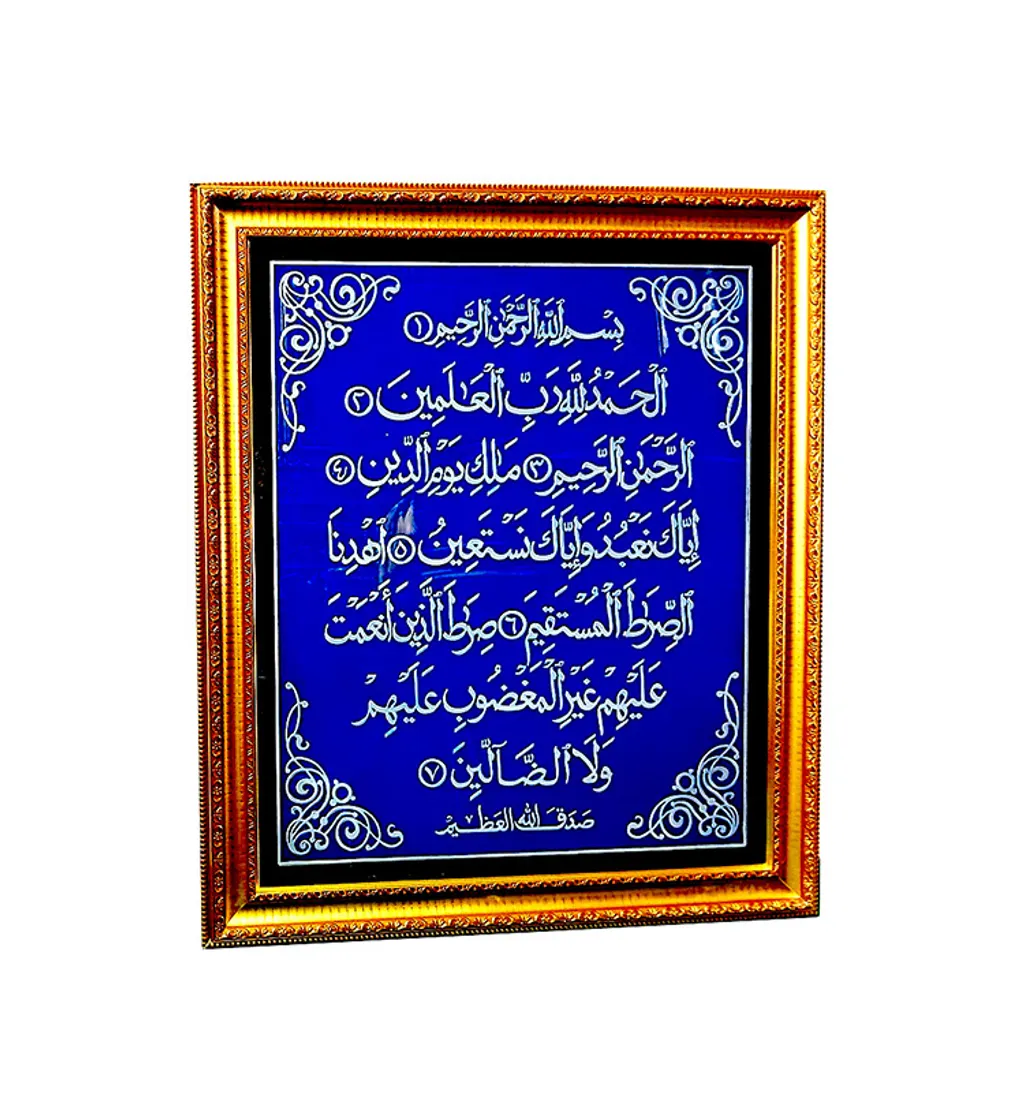 بِسْمِ ٱللَّهِ ٱلرَّحْمَٰنِ ٱلرَّحِيمِ ١
ٱلْحَمْدُ لِلَّهِ رَبِّ ٱلْعَٰلَمِينَ ٢
ٱلرَّحْمَٰنِ ٱلرَّحِيمِ ٣ مَٰلِكِ يَوْمِ ٱلدِّينِ ٤
إِيَّاكَ نَعْبُدُ وَإِيَّاكَ نَسْتَعِينُ ٥ ٱهْدِنَا
ٱلصِّرَٰطَ ٱلْمُسْتَقِيمَ ٦ صِرَٰطَ ٱلَّذِينَ أَنْعَمْتَ
عَلَيْهِمْ غَيْرِ ٱلْمَغْضُوبِ عَلَيْهِمْ
وَلَا ٱلضَّآلِّينَ ٧
صَدَقَ اللّٰه العَظِيمْ